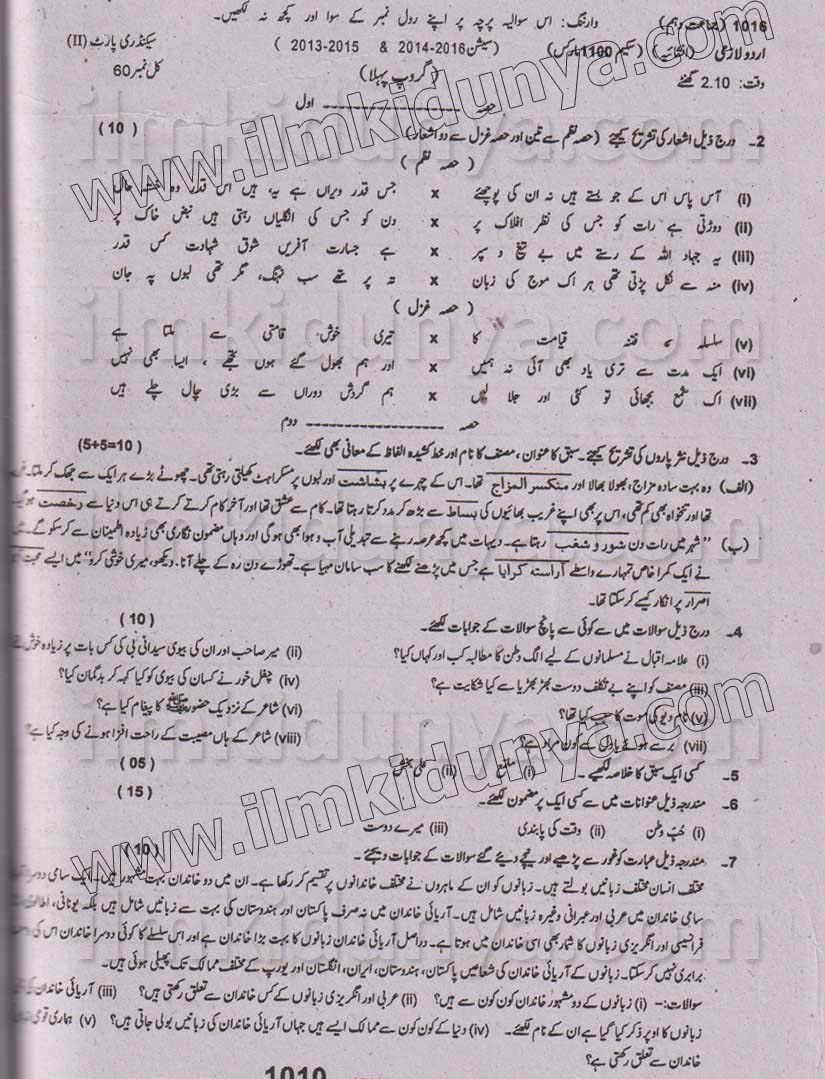 1016 (جماعت دہم) وارننگ: اس سوالیہ پرچہ پر اپنے رول نمبر کے سوا اور کچھ نہ لکھیں۔
اردو لازمی (انشائیہ) (سکیم 1100 مارکس) (سیشن 2014-2016 & 2013-2015) سیکنڈری پارٹ (II)
وقت: 2.10 گھنٹے (گروپ پہلا) کل نمبر 60
حصہ اول
2۔ درج ذیل اشعار کی تشریح کیجئے (حصہ نظم سے تین اور حصہ غزل سے دو اشعار) (10)
(حصہ نظم)
(i) آس پاس اس کے جو بستے ہیں نہ ان کی پوچھئے x جس قدر ویراں ہے یہ، ہیں اس قدر وہ خستہ حال
(ii) دوڑتی ہے رات کو جس کی نظر افلاک پر x دن کو جس کی انگلیاں رہتی ہیں نبض خاک پر
(iii) یہ جہاد اللہ کے رستے میں بے تیغ و سپر x ہے جسارت آفریں شوق شہادت کس قدر
(iv) منہ سے نکل پڑتی تھی ہر اک موج کی زبان x تہ پر تھے سب نہنگ، مگر تھی لبوں پہ جان
(حصہ غزل)
(v) سلسلہ فتنہ قیامت کا x تیری خوش قامتی سے ملتا ہے
(vi) ایک مدت سے تری یاد بھی آئی نہ ہمیں x اور ہم بھول گئے ہوں تجھے، ایسا بھی نہیں
(vii) اک شمع بجھائی تو کئی اور جلا لیں x ہم گردش دوراں سے بڑی چال چلے ہیں
حصہ دوم
3۔ درج ذیل نثر پاروں کی تشریح کیجئے۔ سبق کا عنوان، مصنف کا نام اور خط کشیدہ الفاظ کے معانی بھی لکھئے۔ (5+5=10)
(الف) وہ بہت سادہ مزاج، بھولا بھالا اور منکسر المزاج تھا۔ اس کے چہرے پر بشاشت اور لبوں پر مسکراہٹ کھیلتی رہتی تھی۔ چھوٹے بڑے ہر ایک سے جھک کر ملتا۔
تھا اور تنخواہ بھی کم تھی، اس پر بھی اپنے غریب بھائیوں کی بساط سے بڑھ کر مدد کرتا رہتا تھا۔ کام سے عشق تھا اور آخر کام کرتے کرتے ہی اس دنیا سے رخصت
(ب) "شہر میں رات دن شور و شغب رہتا ہے۔ دیہات میں کچھ عرصہ رہنے سے تبدیلی آب و ہوا بھی ہوگی اور وہاں مضمون نگاری بھی زیادہ اطمینان سے کر سکو گے۔
نے ایک کمرا خاص تمہارے واسطے آراستہ کرایا ہے جس میں پڑھنے لکھنے کا سب سامان مہیا ہے۔ تھوڑے دن رہ کے چلے آنا۔ دیکھو، میری خوشی کرو" میں ایسے محبت
اصرار پر انکار کیسے کر سکتا تھا۔
4۔ درج ذیل سوالات میں سے کوئی سے پانچ سوالات کے جوابات لکھئے۔ (10)
(i) علامہ اقبال نے مسلمانوں کے لیے الگ وطن کا مطالبہ کب اور کہاں کیا؟ (ii) میر صاحب اور ان کی بیوی سیدانی بی کی کس بات پر زیادہ خوش
(iii) مصنف کو اپنے بے تکلف دوست بھڑ بھڑیا سے کیا شکایت ہے؟ (iv) چغل خور نے کسان کی بیوی کو کیا کہہ کر بدگمان کیا؟
(v) نام دیو کی موت کا سبب کیا تھا؟ (vi) شاعر کے نزدیک حضور ﷺ کا پیغام کیا ہے؟
(vii) برسے ہوئے بادل سے کون مراد ہے؟ (viii) شاعر کے ہاں مصیبت کے راحت افزا ہونے کی وجہ کیا ہے؟
5۔ کسی ایک سبق کا خلاصہ لکھیے۔ (i) ملمع (ii) علی بخش (05)
6۔ مندرجہ ذیل عنوانات میں سے کسی ایک پر مضمون لکھئے۔ (15)
(i) حُب وطن (ii) وقت کی پابندی (iii) میرے دوست
7۔ مندرجہ ذیل عبارت کو غور سے پڑھیے اور نیچے دیئے گئے سوالات کے جوابات دیجئے۔ (10)
مختلف انسان مختلف زبانیں بولتے ہیں۔ زبانوں کو ان کے ماہروں نے مختلف خاندانوں پر تقسیم کر رکھا ہے۔ ان میں دو خاندان بہت مشہور ہیں۔ ایک سامی دوسرا
سامی خاندان میں عربی اور عبرانی وغیرہ زبانیں شامل ہیں۔ آریائی خاندان میں نہ صرف پاکستان اور ہندوستان کی بہت سے زبانیں شامل ہیں بلکہ یونانی، اطالوی
فرانسیسی اور انگریزی زبانوں کا شمار بھی اسی خاندان میں ہوتا ہے۔ دراصل آریائی خاندان زبانوں کا بہت بڑا خاندان ہے اور اس سلسلے کا کوئی دوسرا خاندان اس کی
برابری نہیں کر سکتا۔ زبانوں کے آریائی خاندان کی شعاعیں پاکستان، ہندوستان، ایران، انگلستان اور یورپ کے مختلف ممالک تک پھیلی ہوئی ہیں۔
سوالات:- (i) زبانوں کے دو مشہور خاندان کون کون سے ہیں؟ (ii) عربی اور انگریزی زبانوں کے کس خاندان سے تعلق رکھتی ہیں؟ (iii) آریائی خاندان کی
زبانوں کا اوپر ذکر کیا گیا ہے ان کے نام لکھئے۔ (iv) دنیا کے کون کون سے ممالک ایسے ہیں جہاں آریائی خاندان کی زبانیں بولی جاتی ہیں؟ (v) ہماری قومی
خاندان سے تعلق رکھتی ہے؟
www.ilmkidunya.com
www.ilmkidunya.com
ilmkidunya.com
ilmkidunya.com
ilmkidunya.com
ilmkidunya.com
ilmkidunya.com